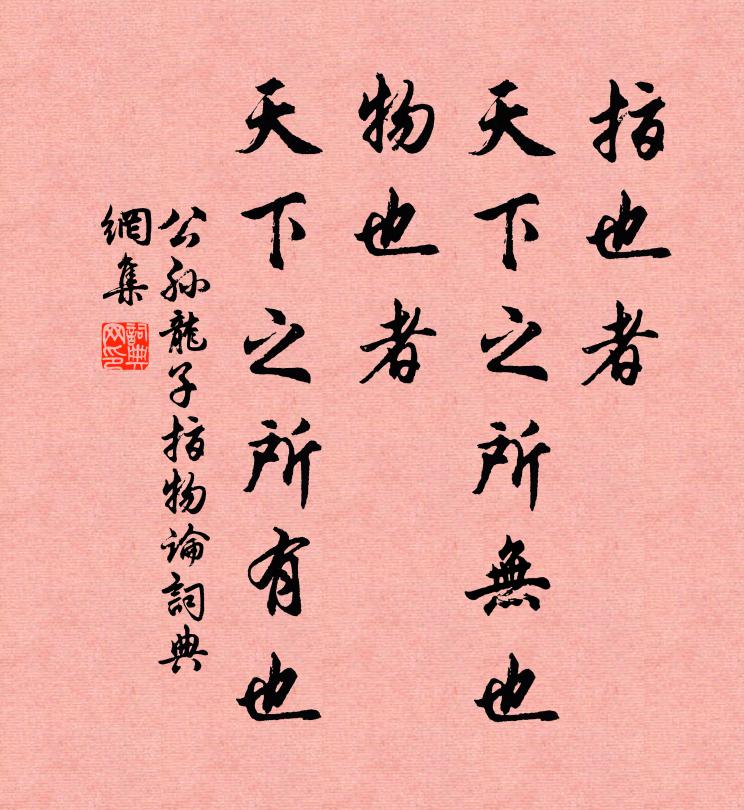 指也者
天下之所無也
物也者
天下之所有也
公孫龍子指物論詞典
網集
詞典
网印